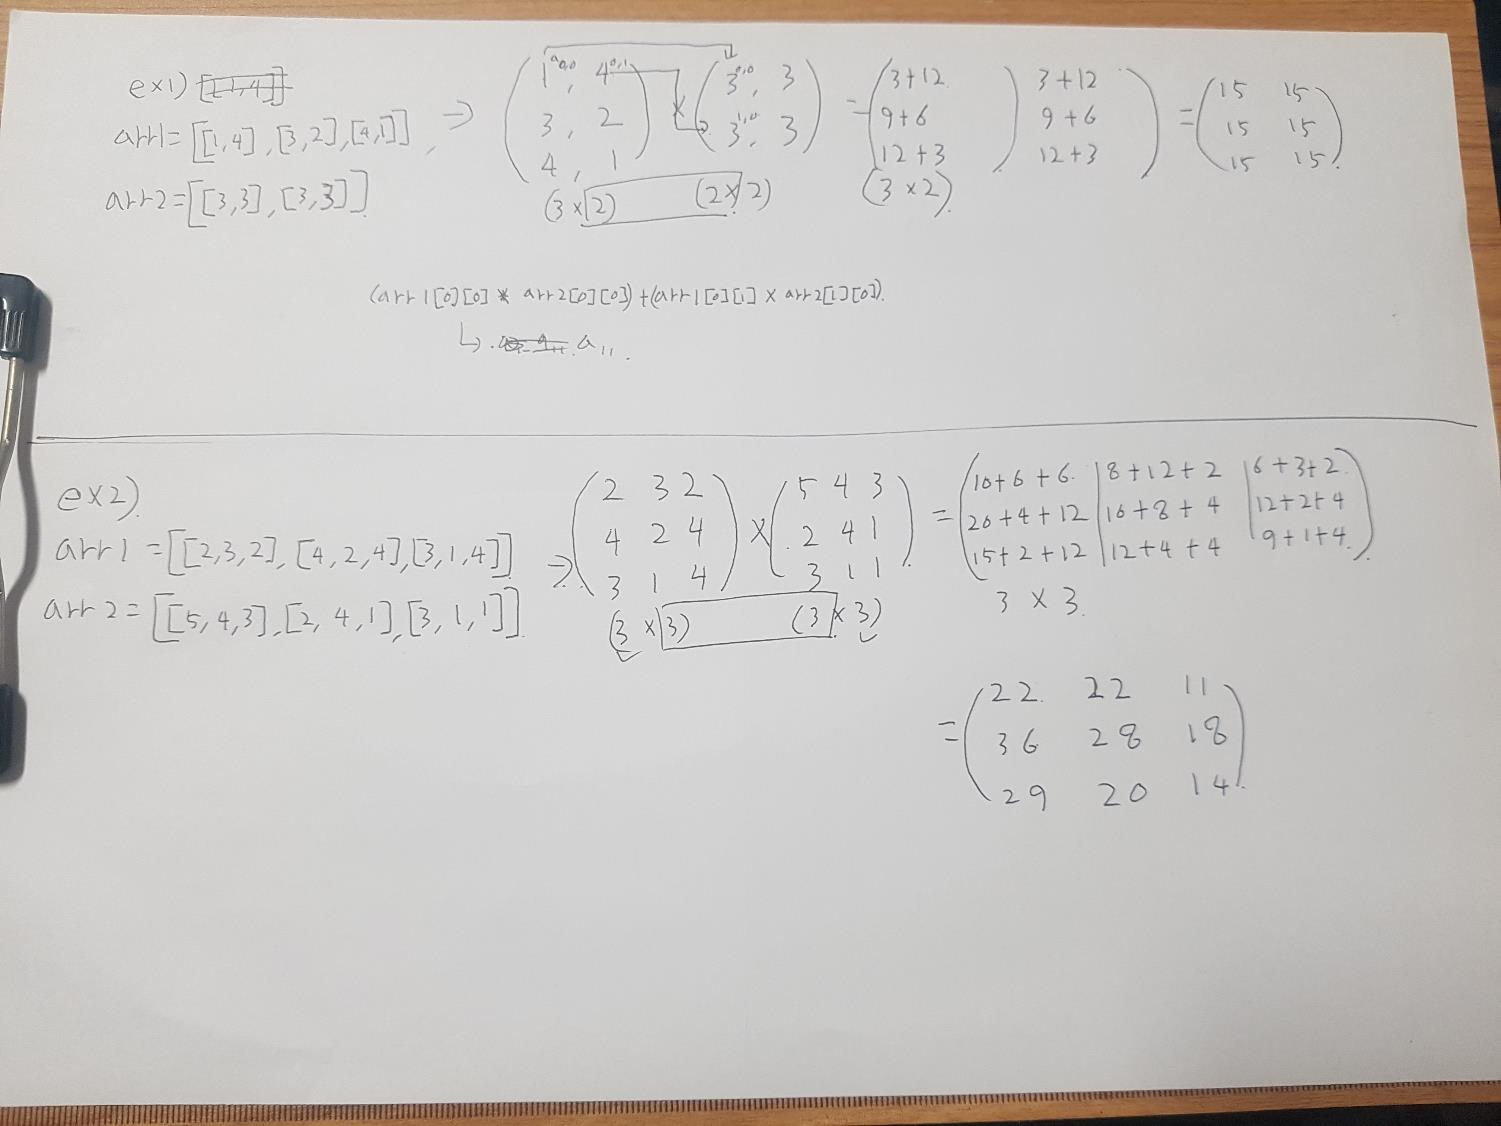 ex1)
arr1=[[1,4],[3,2],[4,1]], ⇒ (1 a0,0, 4 0,1 / 3, 2 / 4, 1) × (3 0,0, 3 / 3 1,0, 3) = (3+12 / 9+6 / 12+3) 3+12 / 9+6 / 12+3) = (15 15 / 15 15 / 15 15)
arr2=[[3,3],[3,3]]
(3×2) (2×2) (3×2)
(arr1[0][0] * arr2[0][0])+(arr1[0][1] × arr2[1][0]).
↳ a11.
ex2)
arr1=[[2,3,2],[4,2,4],[3,1,4]]
arr2=[[5,4,3],[2,4,1],[3,1,1]]
⇒ (2 3 2 / 4 2 4 / 3 1 4) × (5 4 3 / 2 4 1 / 3 1 1) = (10+6+6 | 8+12+2 | 6+3+2 / 20+4+12 | 16+8+4 | 12+2+4 / 15+2+12 | 12+4+4 | 9+1+4)
(3×3) (3×3) 3×3.
= (22 22 11
36 28 18
29 20 14)